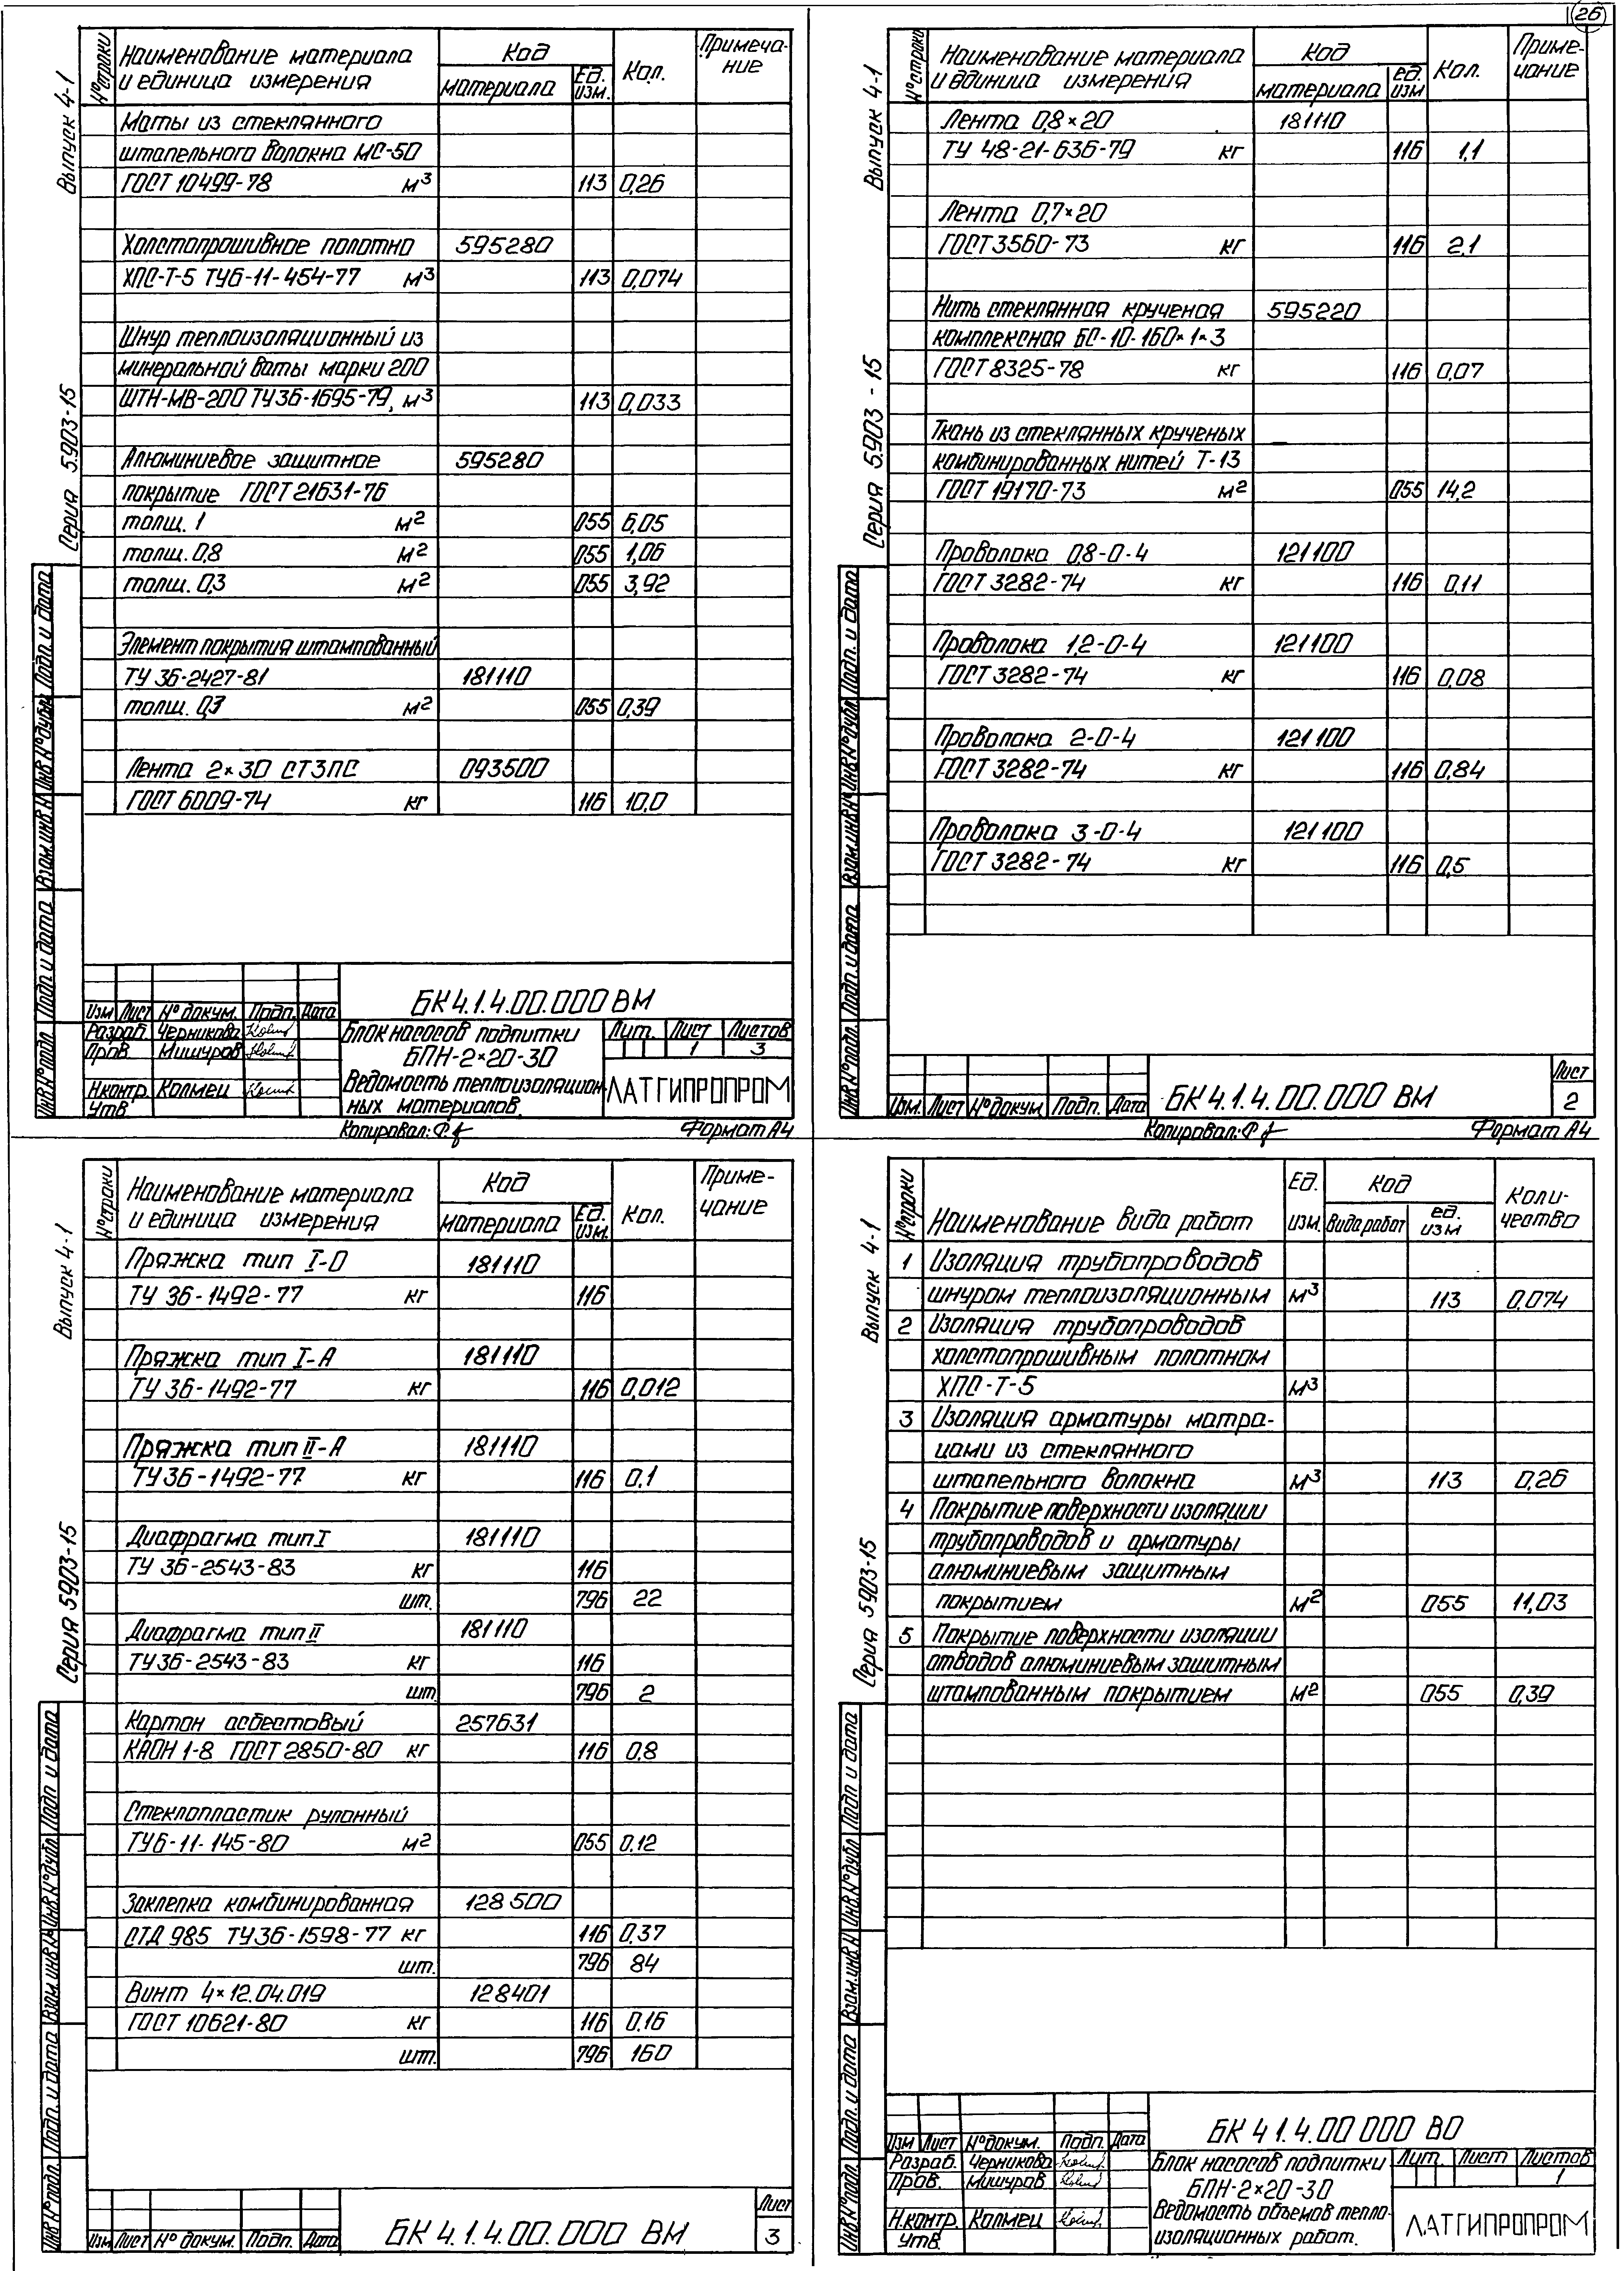 26
Выпуск 4-1
Серия 5.903-15
№ строки
Наименование материала и единица измерения
Код
материала
Ед. изм.
Кол.
Примечание
Маты из стеклянного
штапельного волокна МС-50
ГОСТ 10499-78 м³ 113 0,26
Холстопрошивное полотно 595280
ХПС-Т-5 ТУ6-11-454-77 м³ 113 0,074
Шнур теплоизоляционный из
минеральной ваты марки 200
ШТН-МВ-200 ТУ36-1695-79, м³ 113 0,033
Алюминиевое защитное 595280
покрытие ГОСТ 21631-76
толщ. 1 м² 055 6,05
толщ. 0,8 м² 055 1,06
толщ. 0,3 м² 055 3,92
Элемент покрытия штампованный
ТУ 36-2427-81 181110
толщ. 0,3 м² 055 0,39
Лента 2×30 СТ3ПС 093500
ГОСТ 6009-74 кг 116 10,0
Инв.№ подл. Подп и дата Взам.инв.№ Инв №дубл Подп. и дата
БК 4.1.4.00.000 ВМ
Изм Лист № докум. Подп. Дата
Разраб. Черникова
Пров. Мишуров
Н.контр. Колмец
Утв.
Блок насосов подпитки
БПН-2×20-30
Ведомость теплоизоляцион-
ных материалов.
Лит. Лист Листов
1 3
ЛАТГИПРОПРОМ
Копировал: Формат А4
Выпуск 4-1
Серия 5.903-15
№ строки
Наименование материала и единица измерения
Код
материала
ед. изм
Кол.
Приме-
чание
Лента 0,8×20 181110
ТУ 48-21-636-79 кг 116 1,1
Лента 0,7×20
ГОСТ 3560-73 кг 116 2,1
Нить стеклянная крученая 595220
комплексная БС-10-160×1×3
ГОСТ 8325-78 кг 116 0,07
Ткань из стеклянных крученых
комбинированных нитей Т-13
ГОСТ 19170-73 м² 055 14,2
Проволока 0,8-0-4 121100
ГОСТ 3282-74 кг 116 0,11
Проволока 1,2-0-4 121100
ГОСТ 3282-74 кг 116 0,08
Проволока 2-0-4 121100
ГОСТ 3282-74 кг 116 0,84
Проволока 3-0-4 121100
ГОСТ 3282-74 кг 116 0,5
Инв.№ подл. Подп. и дата Взам.инв.№ Инв.№дубл Подп. и дата
Изм. Лист № докум. Подп. Дата
БК 4.1.4.00.000 ВМ
Лист
2
Копировал: Формат А4
Выпуск 4-1
Серия 5.903-15
№ строки
Наименование материала и единица измерения
Код
материала
Ед. изм.
Кол.
Приме-
чание
Пряжка тип I-О 181110
ТУ 36-1492-77 кг 116
Пряжка тип I-А 181110
ТУ 36-1492-77 кг 116 0,012
Пряжка тип II-А 181110
ТУ 36-1492-77 кг 116 0,1
Диафрагма тип I 181110
ТУ 36-2543-83 кг 116
шт. 796 22
Диафрагма тип II 181110
ТУ 36-2543-83 кг 116
шт. 796 2
Картон асбестовый 257631
КАОН 1-8 ГОСТ 2850-80 кг 116 0,8
Стеклопластик рулонный
ТУ6-11-145-80 м² 055 0,12
Заклепка комбинированная 128500
СТД 985 ТУ36-1598-77 кг 116 0,37
шт. 796 84
Винт 4×12.04.019 128401
ГОСТ 10621-80 кг 116 0,16
шт. 796 160
Инв № подл. Подп. и дата Взам.инв.№ Инв.№ дубл Подп и дата
Изм Лист № докум. Подп. Дата
БК 4.1.4.00.000 ВМ
Лист
3
Выпуск 4-1
Серия 5.903-15
№ строки
Наименование вида работ
Ед. изм.
Код
вида работ
ед. изм
Коли-
чество
1 Изоляция трубопроводов
шнуром теплоизоляционным м³ 113 0,074
2 Изоляция трубопроводов
холстопрошивным полотном
ХПС-Т-5 м³
3 Изоляция арматуры матра-
цами из стеклянного
штапельного волокна м³ 113 0,26
4 Покрытие поверхности изоляции
трубопроводов и арматуры
алюминиевым защитным
покрытием м² 055 11,03
5 Покрытие поверхности изоляции
отводов алюминиевым защитным
штампованным покрытием м² 055 0,39
Инв № подл. Подп. и дата Взам.инв.№ Инв.№ дубл Подп и дата
БК 4.1.4.00 000 ВО
Изм Лист № докум. Подп. Дата
Разраб. Черникова
Пров. Мишуров
Н.контр. Колмец
Утв.
Блок насосов подпитки
БПН-2×20-30
Ведомость объемов тепло-
изоляционных работ.
Лит. Лист Листов
1
ЛАТГИПРОПРОМ